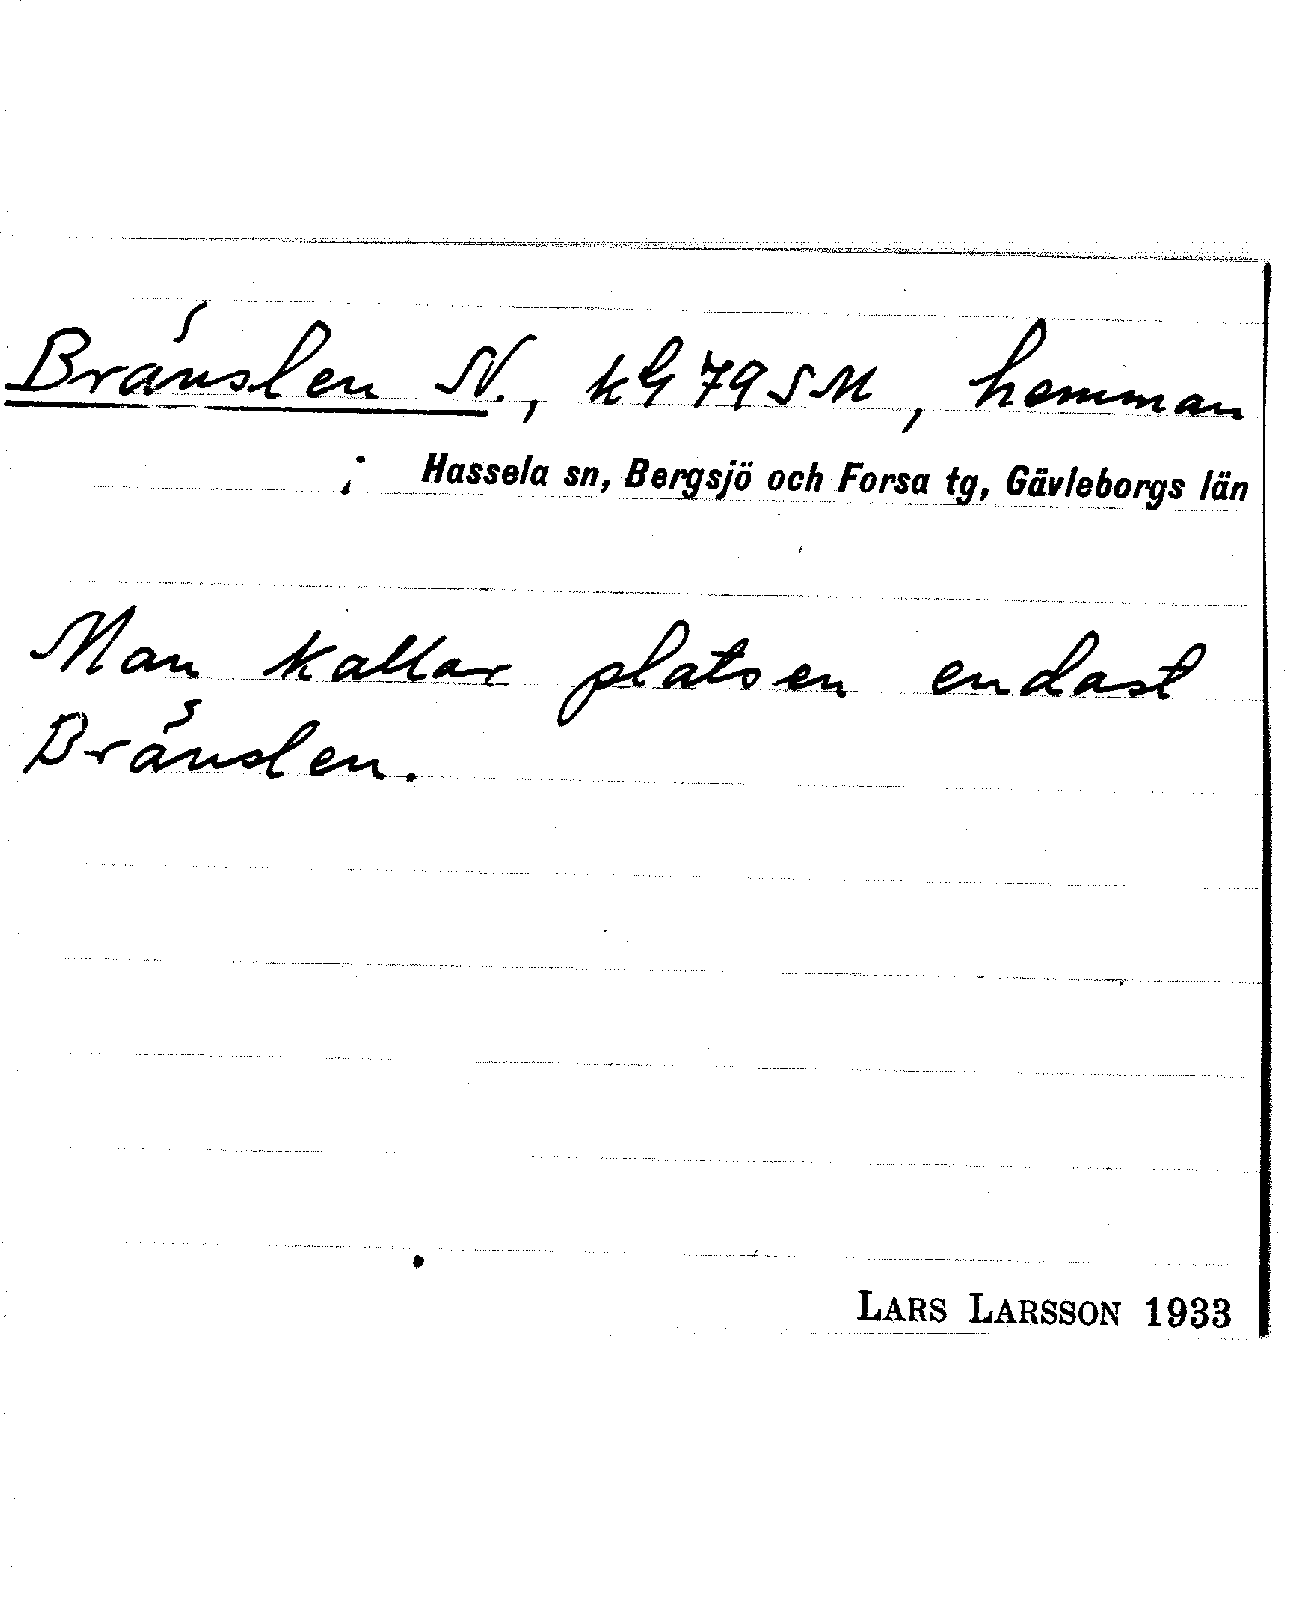 Bränslen N., kG 79 SM, hemman
; Hassela sn, Bergsjö och Forsa tg, Gävleborgs län
Man kallar platsen endast
Bränslen.
LARS LARSSON 1933